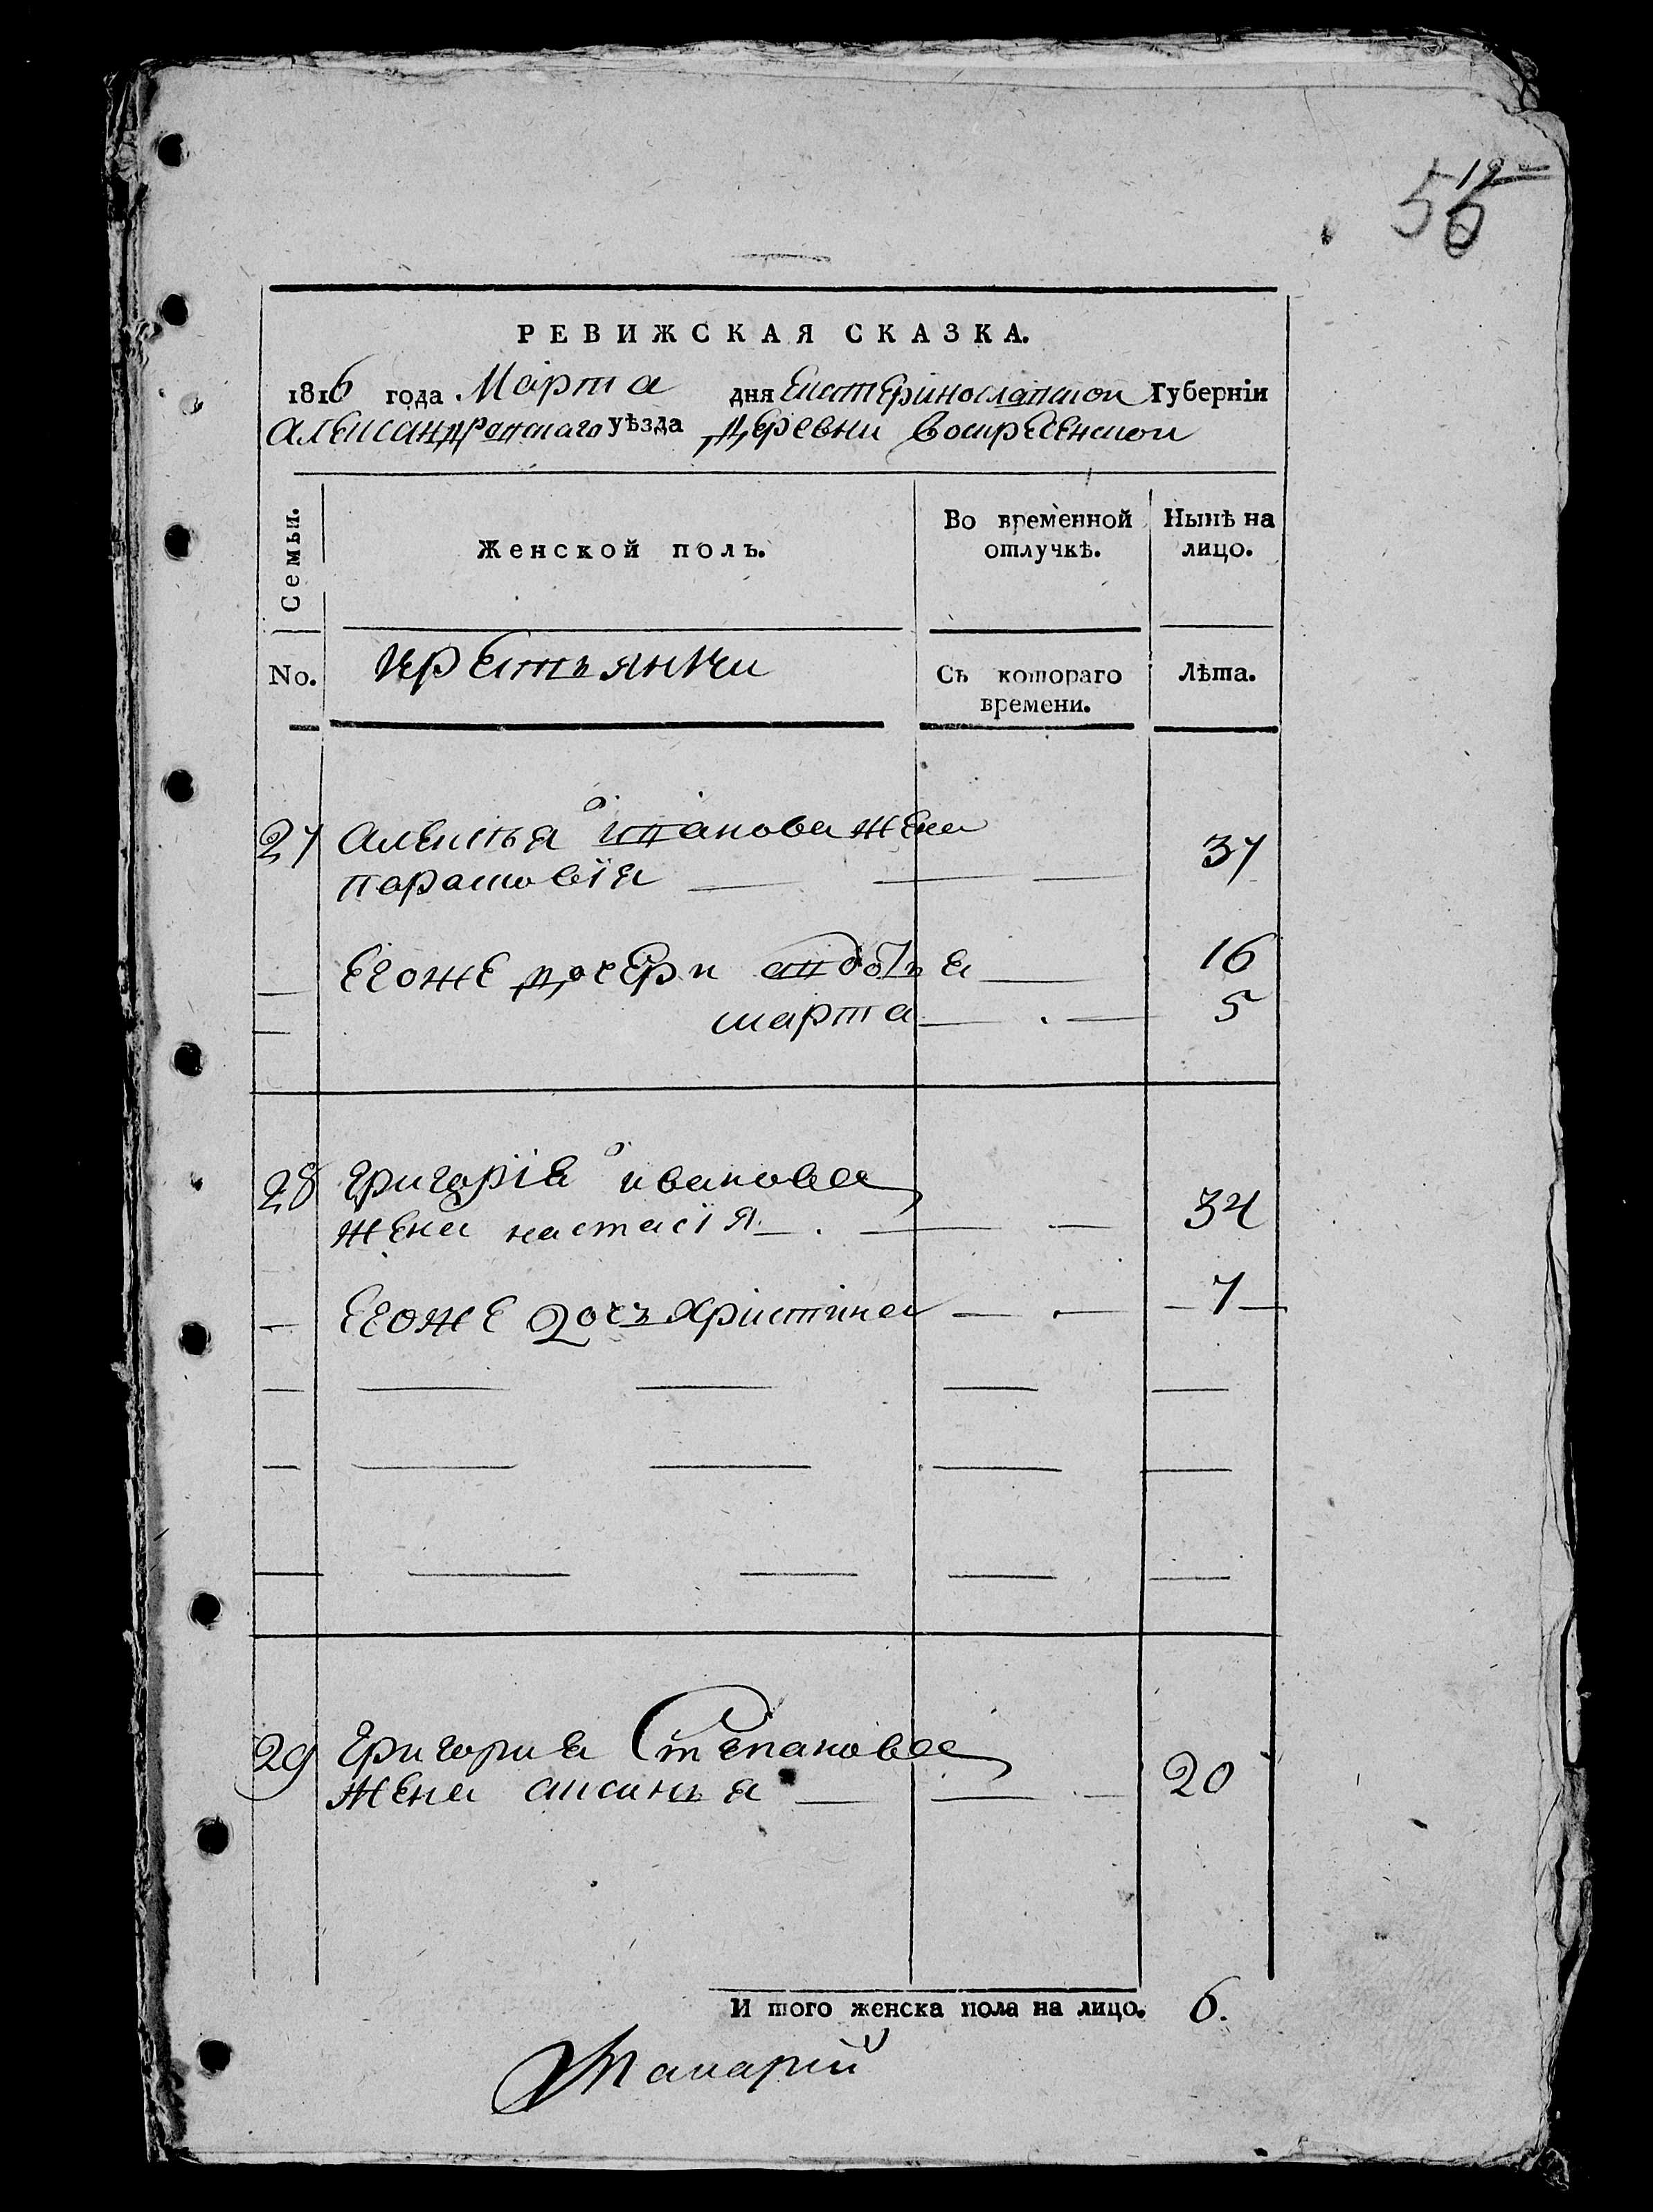 19
56
РЕВИЖСКАЯ СКАЗКА.
1816 года Марта дня Екатеринославской Губерніи
Александровскаго уѣзда деревни воскресенской
Семьи.
Женской полъ.
Во временной отлучкѣ.
Нынѣ на лицо.
No.
крестьянки
Съ котораго времени.
Лѣта.
27 алексѣя иванова жена
парасковія — — — 37
— егоже дочери авдотья — 16
— марта — — 5
28 григорія иванова
жена настасія — — — 34
— егоже дочь христина — — 7
29 григория Степанова
жена аксинья — — — 20
И того женска пола на лицо. 6.
Макарій